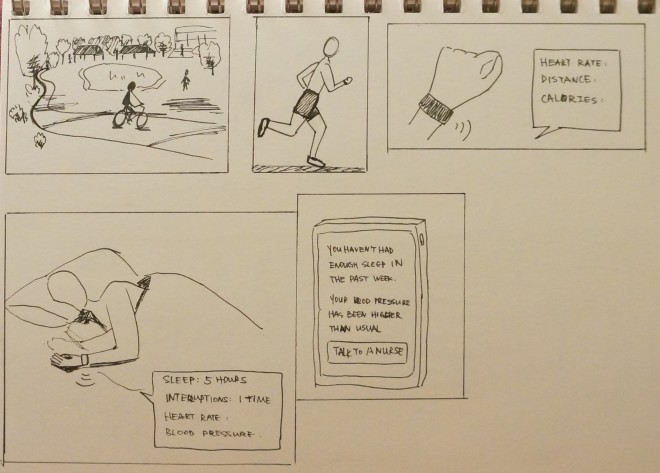 HEART RATE:
DISTANCE:
CALORIES:
SLEEP: 5 HOURS
INTERRUPTIONS: 1 TIME
HEART RATE:
BLOOD PRESSURE:
YOU HAVEN'T HAD
ENOUGH SLEEP IN
THE PAST WEEK.
YOUR BLOOD PRESSURE
HAS BEEN HIGHER
THAN USUAL
TALK TO A NURSE